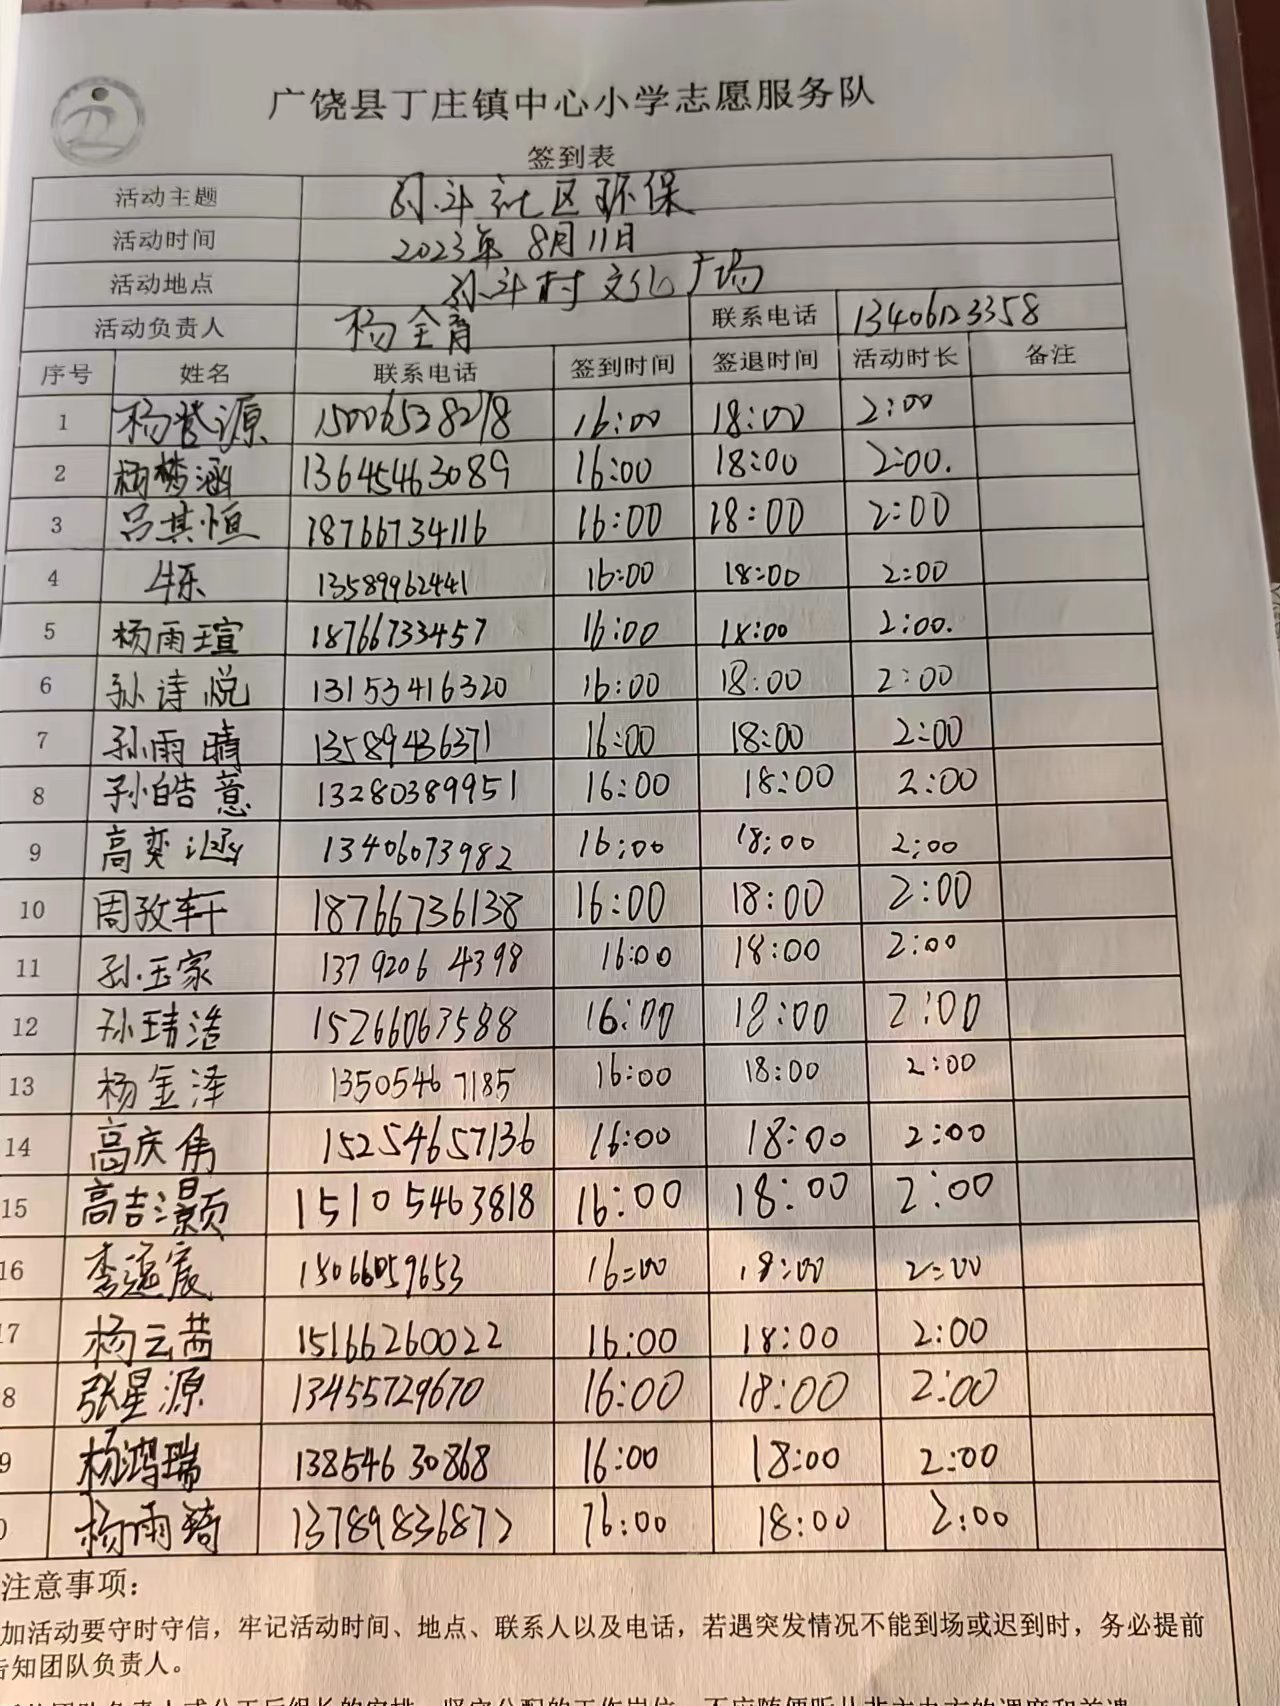 广饶县丁庄镇中心小学志愿服务队
签到表
活动主题 孙斗社区环保
活动时间 2023年8月11日
活动地点 孙斗村文化广场
活动负责人 杨全育 联系电话 13406123358
序号 姓名 联系电话 签到时间 签退时间 活动时长 备注
1 杨誉源 15006538218 16:00 18:00 2:00
2 杨梦涵 13645463089 16:00 18:00 2:00.
3 吕其恒 18766734116 16:00 18:00 2:00
4 牛乐 13589962441 16:00 18:00 2:00
5 杨雨瑄 18766733457 16:00 18:00 2:00.
6 孙诗悦 13153416320 16:00 18:00 2:00
7 孙雨晴 13589436371 16:00 18:00 2:00
8 孙皓意 13280389951 16:00 18:00 2:00
9 高奕涵 13406073982 16:00 18:00 2:00
10 周孜轩 18766736138 16:00 18:00 2:00
11 孙玉家 13792064398 16:00 18:00 2:00
12 孙玮浩 15266063588 16:00 18:00 2:00
13 杨金泽 13505467185 16:00 18:00 2:00
14 高庆伟 15254657136 16:00 18:00 2:00
15 高吉灏 15105463818 16:00 18:00 2:00
16 李宸 15066059653 16=00 18:00 2=00
7 杨云茜 15166260022 16:00 18:00 2:00
8 张星源 13455729670 16:00 18:00 2:00
9 杨鸿瑞 13854630868 16:00 18:00 2:00
0 杨雨琦 13789836872 16:00 18:00 2:00
注意事项：
加活动要守时守信，牢记活动时间、地点、联系人以及电话，若遇突发情况不能到场或迟到时，务必提前
告知团队负责人。